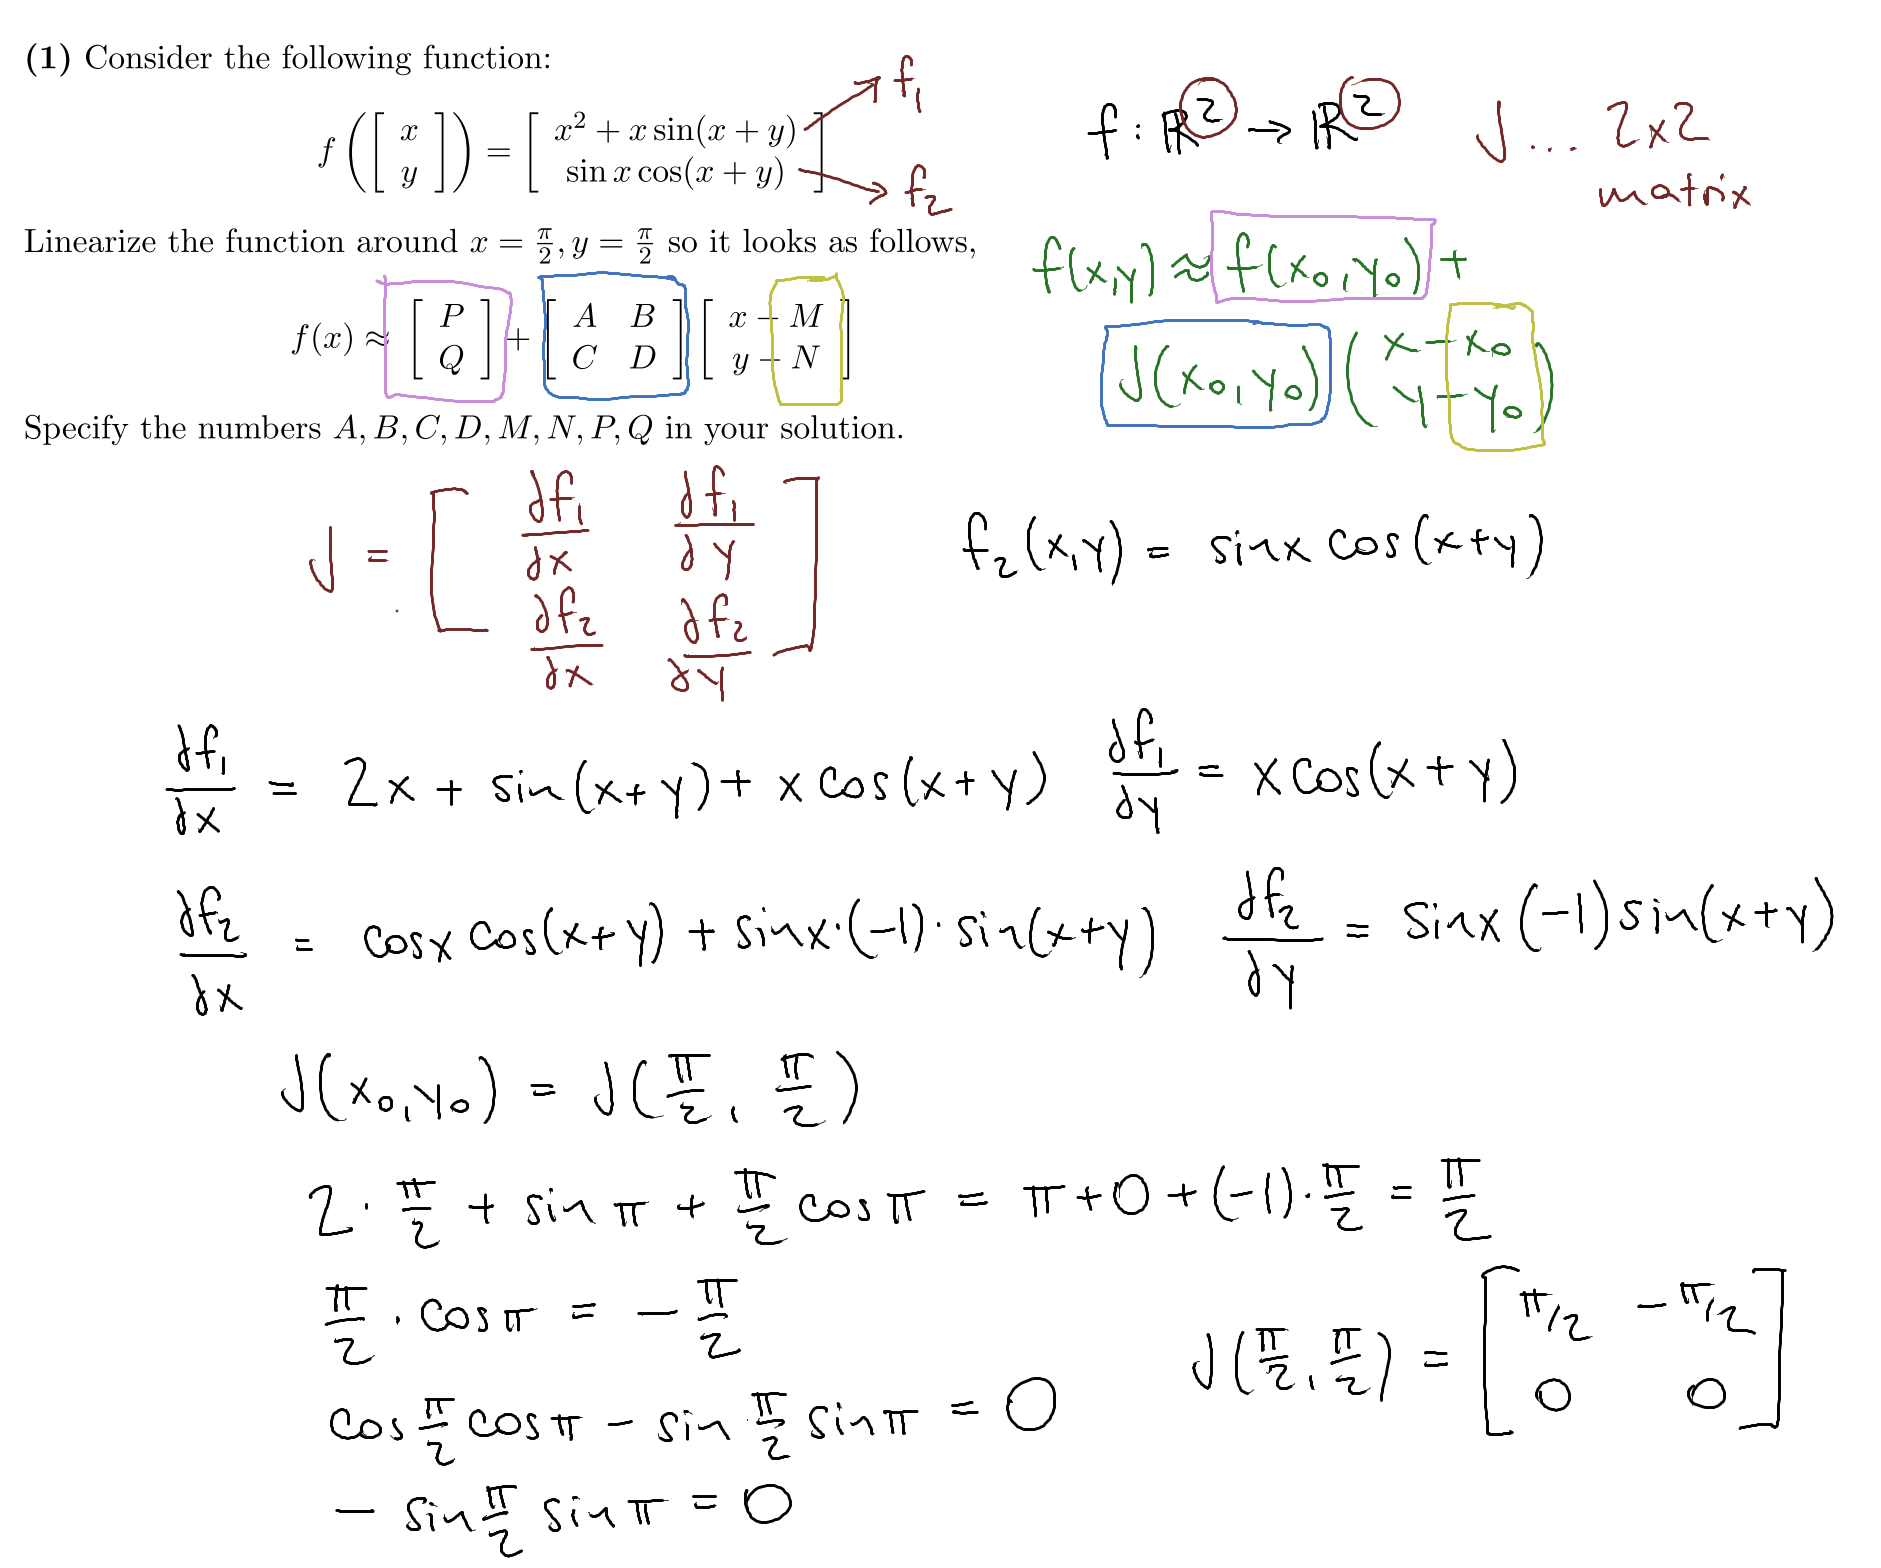 (1) Consider the following function:
f([x y]) = [x² + x sin(x + y) sin x cos(x + y)]
f₁
f₂
f : ℝ² → ℝ²
J ... 2x2
matrix
Linearize the function around x = π/2, y = π/2 so it looks as follows,
f(x,y) ≈ f(x₀,y₀) +
J(x₀,y₀) (x-x₀ y-y₀)
f(x) ≈ [P Q] + [A B C D] [x − M y − N]
Specify the numbers A, B, C, D, M, N, P, Q in your solution.
J = [∂f₁/∂x ∂f₁/∂y ∂f₂/∂x ∂f₂/∂y]
f₂(x,y) = sinx cos(x+y)
∂f₁/∂x = 2x + sin(x+y) + x cos(x+y) ∂f₁/∂y = x cos(x+y)
∂f₂/∂x = cosx cos(x+y) + sinx·(-1)·sin(x+y) ∂f₂/∂y = sinx (-1) sin(x+y)
J(x₀,y₀) = J(π/2, π/2)
2·π/2 + sin π + π/2 cos π = π + 0 + (-1)·π/2 = π/2
π/2 · cos π = − π/2
J(π/2, π/2) = [π/2 −π/2 0 0]
cos π/2 cos π − sin π/2 sin π = 0
− sin π/2 sin π = 0